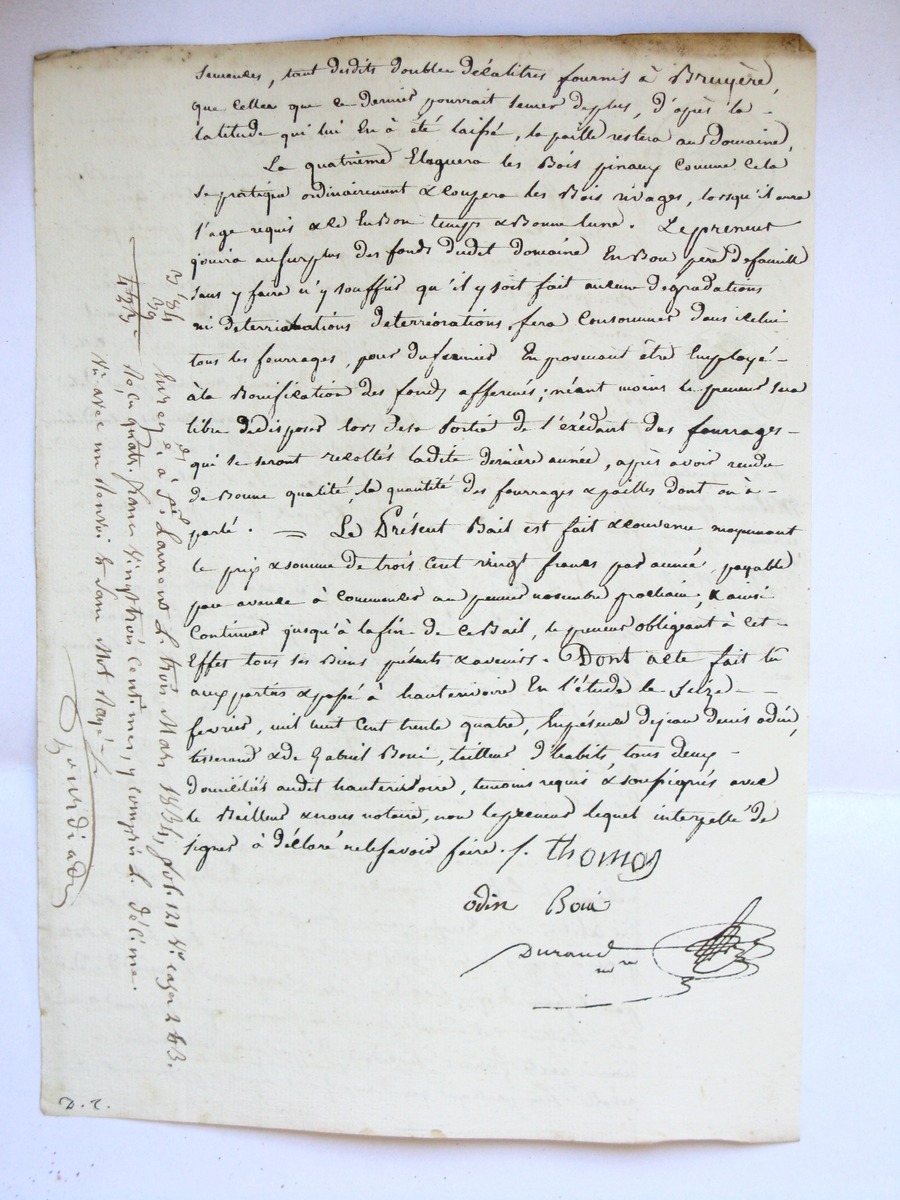 semences, tant desdits doubles décalitres fournis à Bruyère,
que celles que ce dernier pourrait semer deplus, d'après la
latitude qui lui en à été laissé, la paille restera au domaine,
La quatrième Elaguera les Bois pinaux comme cela
se pratique ordinairement & coupera les Bois rivages, lorsqu'il aura
l'age requis & le En Bon temps & Bonne lune. Le preneur
jouira au surplus des fonds dudit domaine En Bon père de famille
sans y faire n'y souffrir qu'il y soit fait aucune dégradations
ni deterriorations, fera consommer dans celui
tous les fourrages, pour du fumier En provenant être Employé
à la Bonification des fonds affermés; néant moins le preneur sera
libre de disposer lors de sa sortie de l'exédant des fourrages
qui se seront recoltés ladite dernière année, après avoir rendu
de Bonne qualité, la quantité des fourrages & pailles dont on à
parlé. = Le Présent Bail est fait & convenu moyennant
le prix & somme de trois cent vingt francs par année, payable
par avance à commencer au premier novembre prochain, & ainsi
continuer jusqu'à la fin de ce Bail, le preneur obligeant à cet
Effet tous ses Biens présents & avenirs. Dont acte fait lu
aux parties & passé à hauterivoire En l'étude le seize
fevrier, mil huit cent trente quatre, En présence de jean denis odin,
tisserand & de Gabriel Boui, tailleur d'habits, tous deux
domiciliés audit hauterivoire, temoins requis & soussignés avec
le Bailleur & nous notaire, non le preneur lequel interpellé de
signer à déclaré ne le savoir faire. f. thomas
odin Boui
Durand nre
3 84
39
4 23
Enreg. à St. Laurent le trois Mars 1834, fol. 121 Vo. cases 2 & 3.
Reçu quatre francs vingt trois centimes, y compris le décime.
D. T.